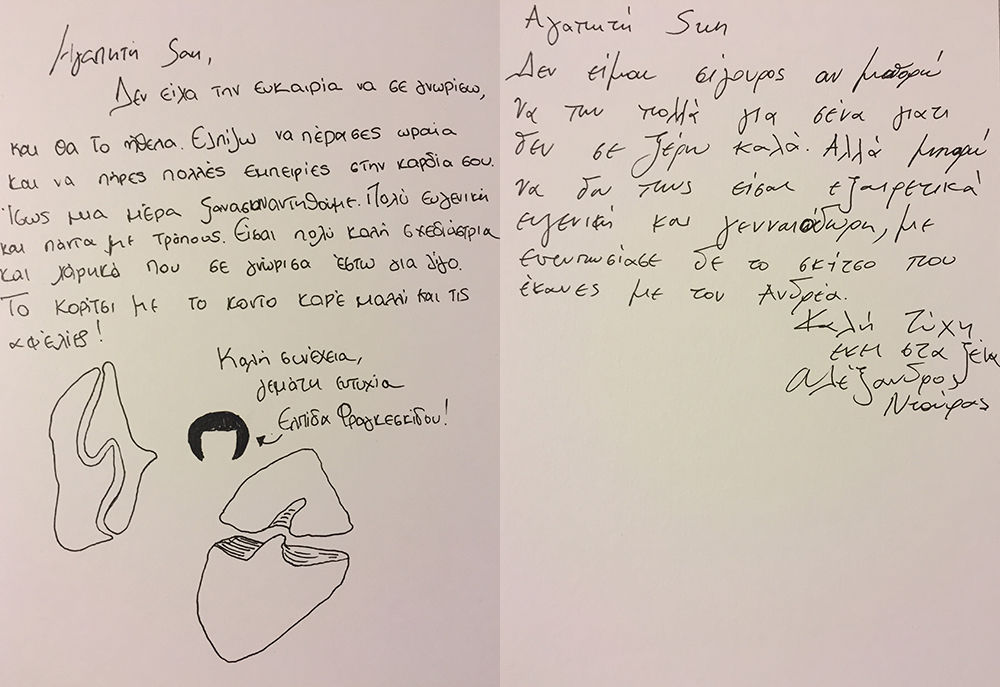 Αγαπητή San,
Δεν είχα την ευκαιρία να σε γνωρίσω,
και θα το ήθελα. Ελπίζω να πέρασες ωραία
και να πήρες πολλές εμπειρίες στην καρδιά σου.
Ίσως μια μέρα ξανασυναντηθούμε. Πολύ ευγενική
και πάντα με τρόπους. Είσαι πολύ καλή σχεδιάστρια
και χάρηκα που σε γνώρισα έστω για λίγο.
Το κορίτσι με το κοντό καρέ μαλλί και τις
αφέλιες!
Καλή συνέχεια,
γεμάτη ευτυχία
Ελπίδα Φραγκεσκίδου!
Αγαπητή Sun
Δεν είμαι σίγουρος αν μπορώ
να πω πολλά για σένα γιατί
δεν σε ξέρω καλά. Αλλά μπορώ
να δω πως είσαι εξαιρετικά
ευγενική και γενναιόδωρη, με
εντυπωσίασε δε το σκίτσο που
έκανες με τον Ανδρέα.
Καλή τύχη
εκεί στα ξένα
Αλέξανδρος
Ντούρας